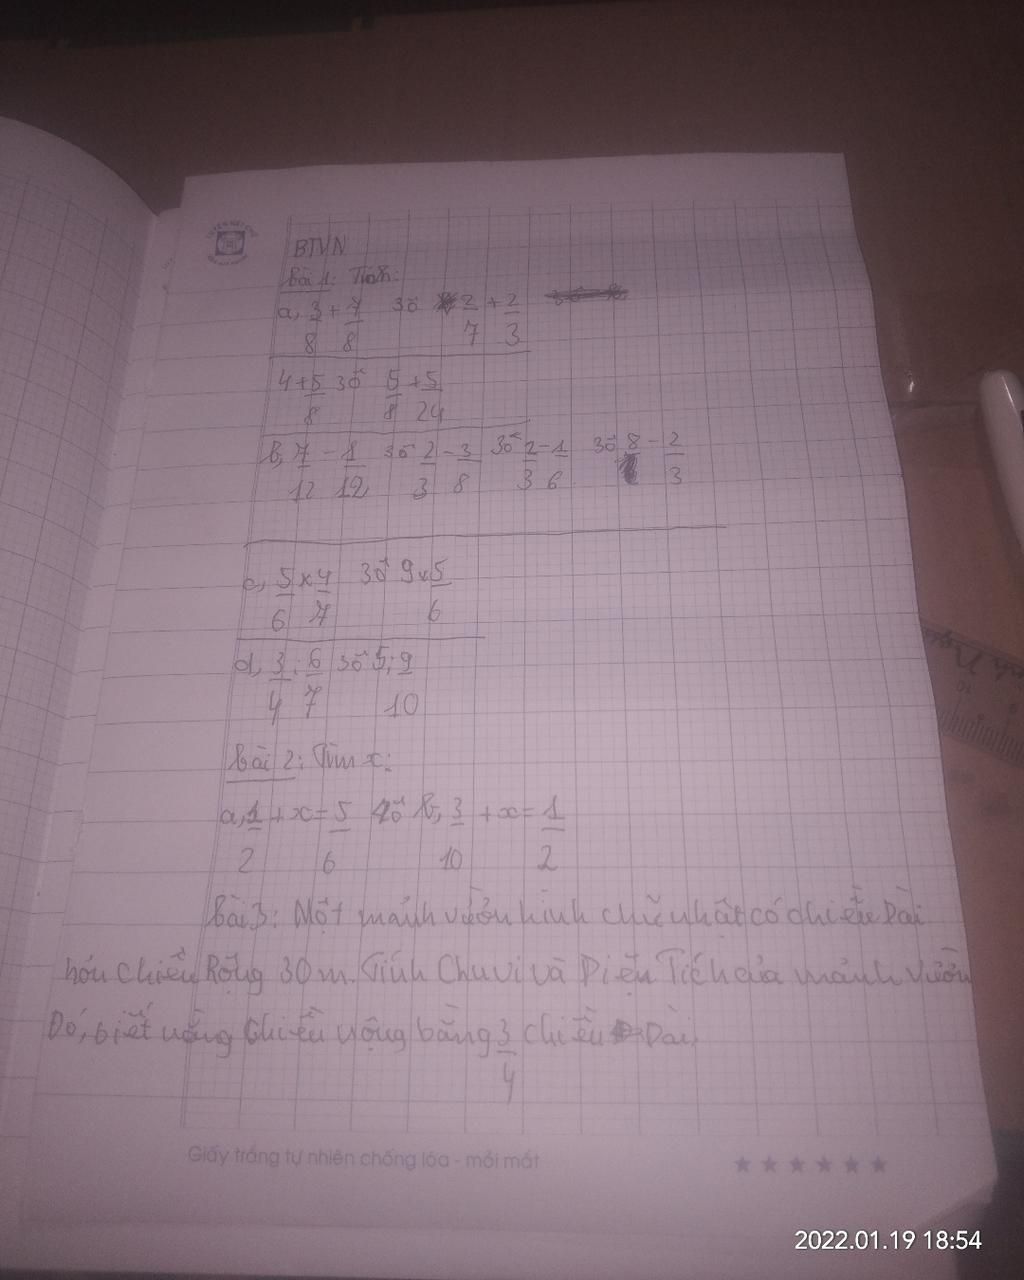 BTVN
Bài 1: Tính:
a, 3/8 + 7/8 3ô 2/7 + 2/3
4 + 5/8 3ô 5/8 + 5/24
b, 7/12 - 1/12 3ô 2/3 - 3/8 3ô 2/3 - 1/6 3ô 8 - 2/3
c, 5/6 x 4/7 3ô 9 x 5/6
d, 3/4 : 6/7 3ô 5 : 9/10
Bài 2: Tìm x:
a, 1/2 + x = 5/6 4ô b, 3/10 + x = 1/2
Bài 3: Một mảnh vườn hình chữ nhật có chiều Dài
hơn chiều Rộng 30 m. Tính Chu vi và Diện Tích của mảnh vườn
Đó, biết rằng Chiều rộng bằng 3/4 chiều Dài.
Giấy trắng tự nhiên chống lóa - mỏi mắt
2022.01.19 18:54